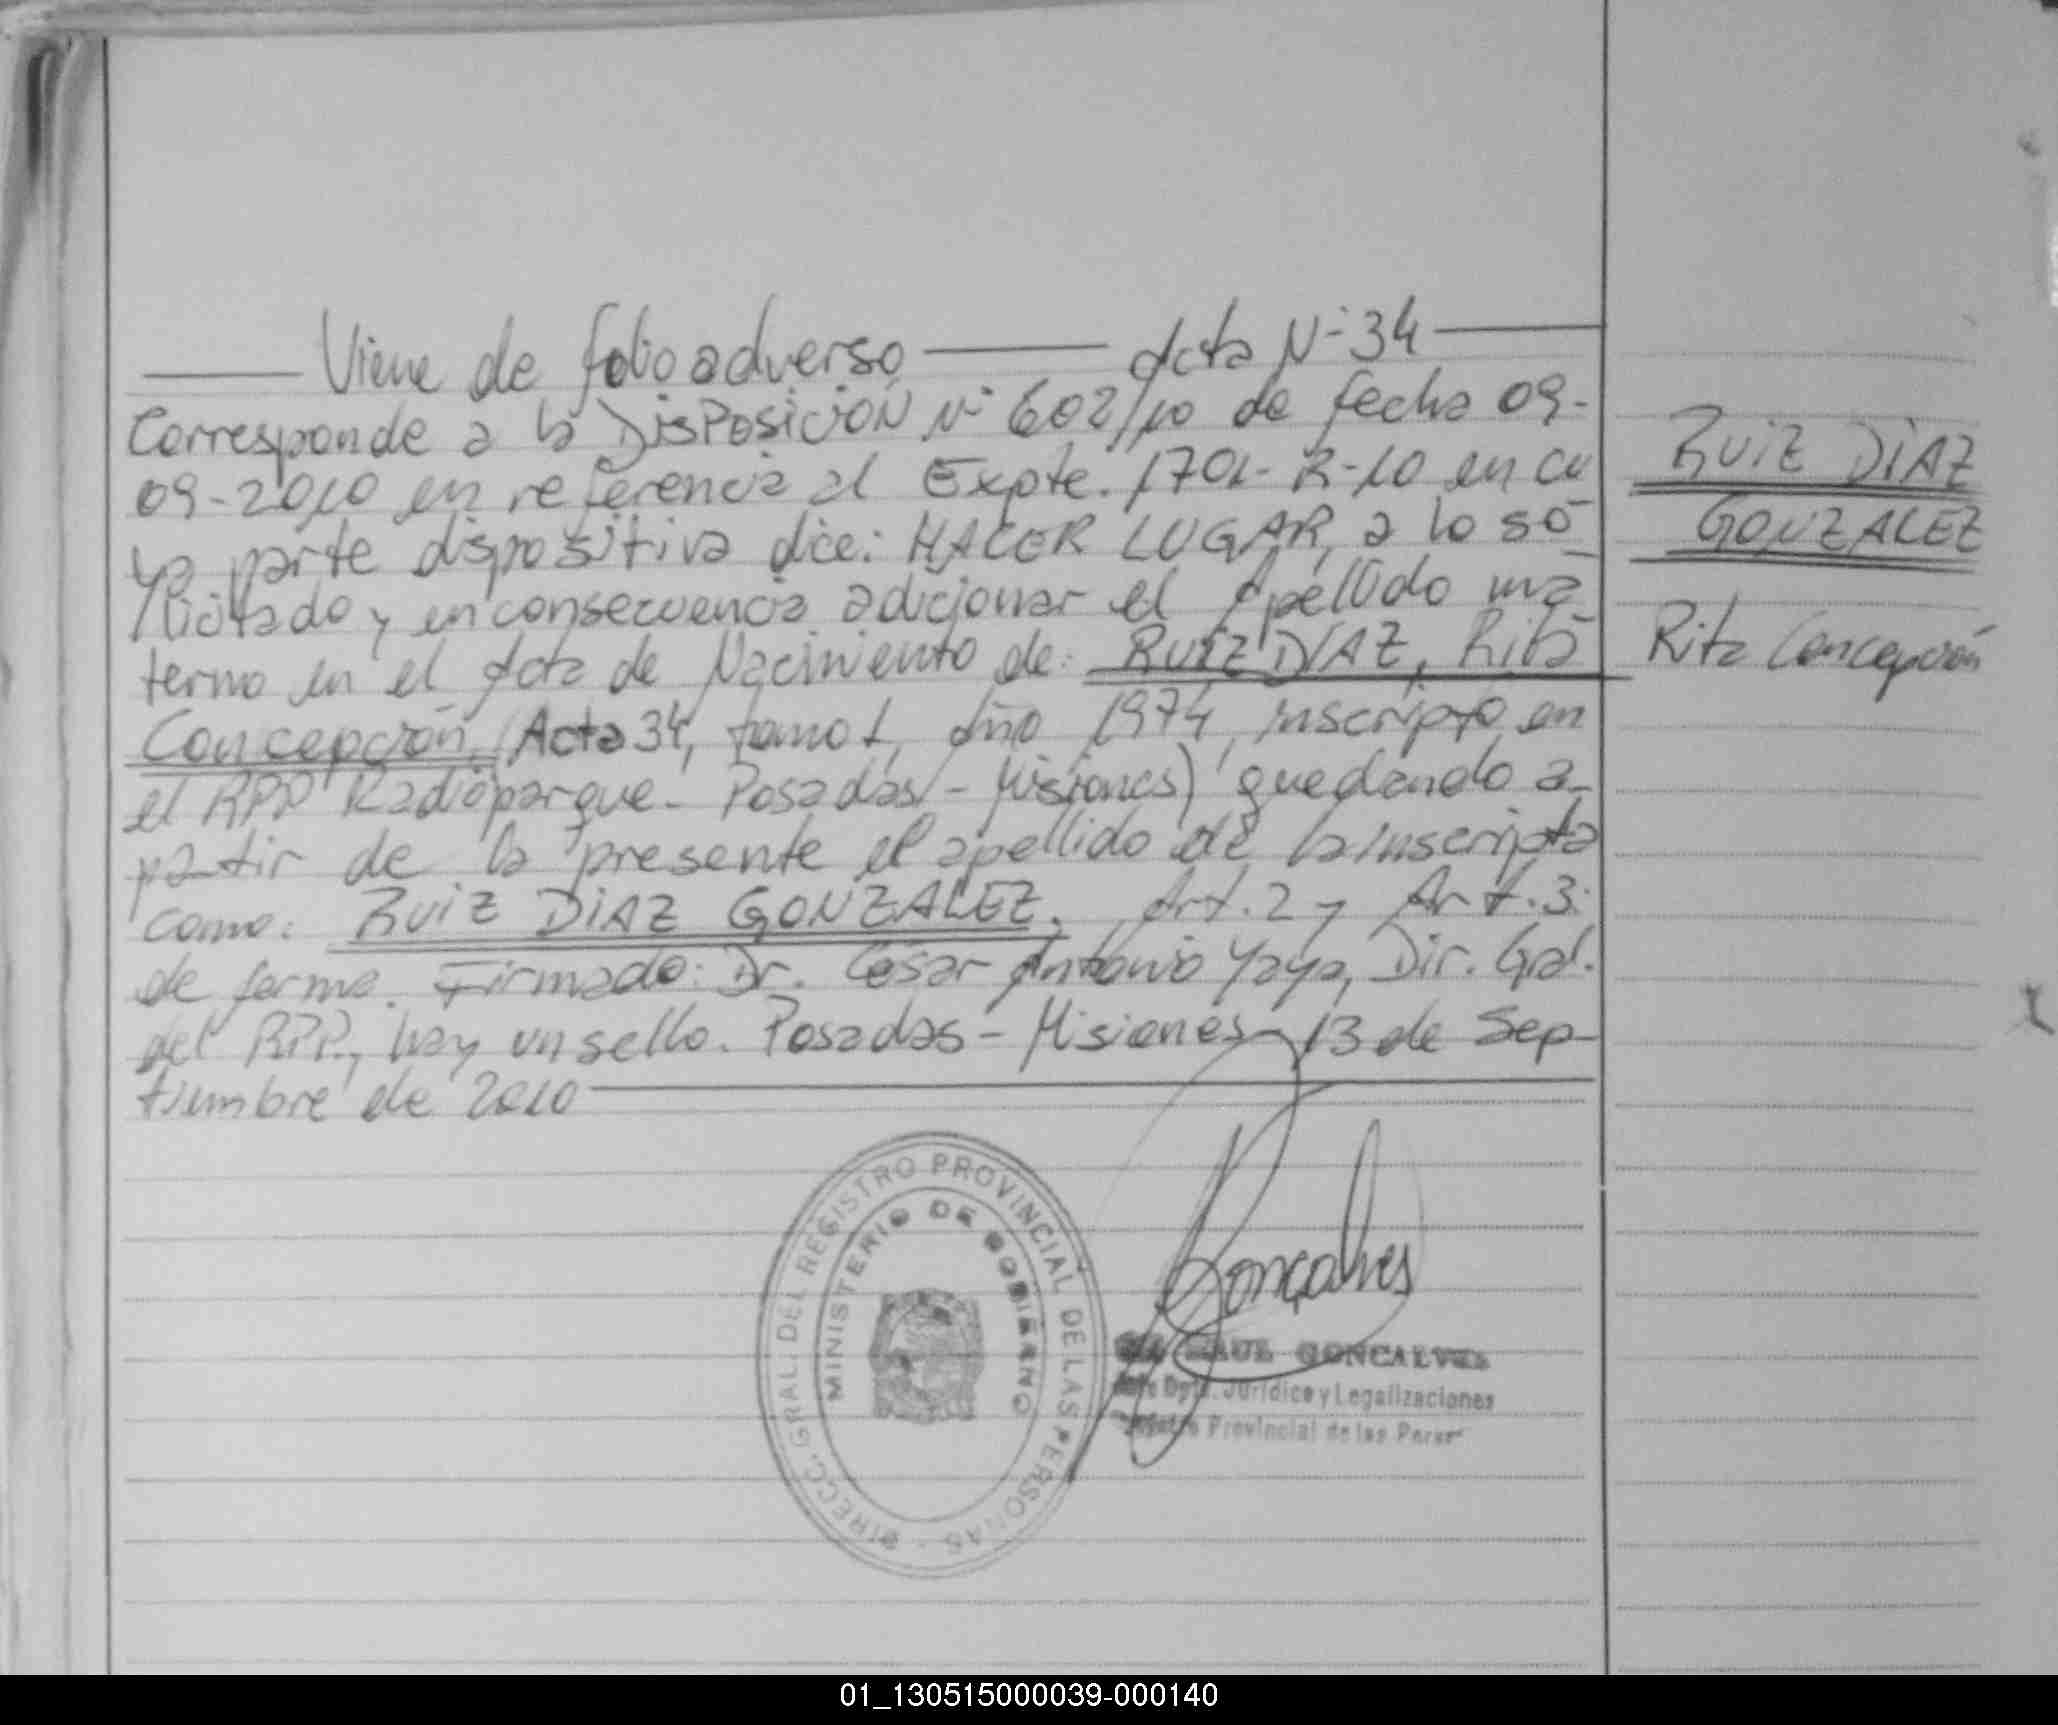 Viene de folio adverso Acta Nº 34
Corresponde a la DISPOSICIÓN Nº 602/10 de fecha 09-
09-2010 en referencia al Expte. 1701-R-10 en cu
ya parte dispositiva dice: HACER LUGAR, a lo so-
licitado y en consecuencia adicionar el Apellido ma-
terno en el Acta de Nacimiento de: RUIZ DIAZ, Rita
Concepción, (Acta 34, tomo 1, Año 1974, inscripto en
el RPP Radioparque - Posadas - Misiones) quedando a-
partir de la presente el apellido de la inscripta
como: RUIZ DIAZ GONZALEZ. Art. 2 y Art. 3:
de forma. Firmado: Dr. Cesar Antonio Yaya, Dir. Gral.
del RPP., hay un sello. Posadas - Misiones, 13 de Sep-
tiembre de 2010
RUIZ DIAZ
GONZALEZ
Rita Concepción
DIRECC. GRAL. DEL REGISTRO PROVINCIAL DE LAS PERSONAS
MINISTERIO DE GOBIERNO
Gonçalves
RAUL GONCALVES
Jefe Dpto. Jurídico y Legalizaciones
Registro Provincial de las Pers
01_130515000039-000140